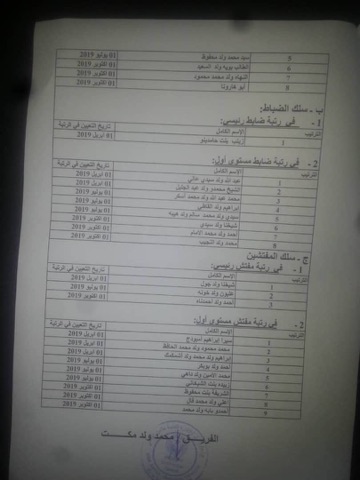 5 سيد محمد ولد سطوط 01 يوليو 2019
6 الطالب بويه ولد السعيد 01 أكتوبر 2019
7 الشهاد ولد محمد محمود 01 أكتوبر 2019
8 أبو فارونا 01 أكتوبر 2019
ب - سلك الضباط:
1 - في رتبة ضابط رئيسي:
الترتيب الإسم الكامل تاريخ التعيين في الرتبة
1 زينب بنت حامدينو 01 ابريل 2019
2 - في رتبة ضابط مستوى أول:
الترتيب الإسم الكامل تاريخ التعيين في الرتبة
1 عبد الله ولد سيدي عالي 01 ابريل 2019
2 الشيخ محمدو ولد عبد الجليل 01 ابريل 2019
3 محمد عبد الله ولد محمد أسكر 01 ابريل 2019
4 إبراهيم ولد القاظي 01 يوليو 2019
5 سيدي محمد ولد محمد سالم ولد هيبه 01 يوليو 2019
6 شيغنا ولد سيدي 01 يوليو 2019
7 احمد ولد محمد الامام 01 أكتوبر 2019
8 محمد ولد النجيب 01 أكتوبر 2019
ج - سلك المفتشين
1 - في رتبة مفتش رئيسي:
الترتيب الإسم الكامل تاريخ التعيين في الرتبة
1 شيغنا ولد جول 01 ابريل 2019
2 عليون ولد خونه 01 يوليو 2019
3 أحمد ولد أحمدناه 01 أكتوبر 2019
2 - في رتبة مفتش مستوى أول:
الترتيب الإسم الكامل تاريخ التعيين في الرتبة
1 ميرا إبراهيم أميودج 01 ابريل 2019
2 محمد محمود ولد محمد الحافظ 01 ابريل 2019
3 إبراهيم ولد محمد ولد 01 ابريل 2019
4 أحمد ولد بوبكر 01 يوليو 2019
5 محمد الأمين ولد داهي 01 يوليو 2019
6 زبيده بنت الشيباني 01 يوليو 2019
7 الشريفة بنت محفوظ 01 أكتوبر 2019
8 اعلي ولد محمد فال 01 أكتوبر 2019
9 احمدو بابه ولد محمد 01 أكتوبر 2019
الفريق محمد ولد مكت